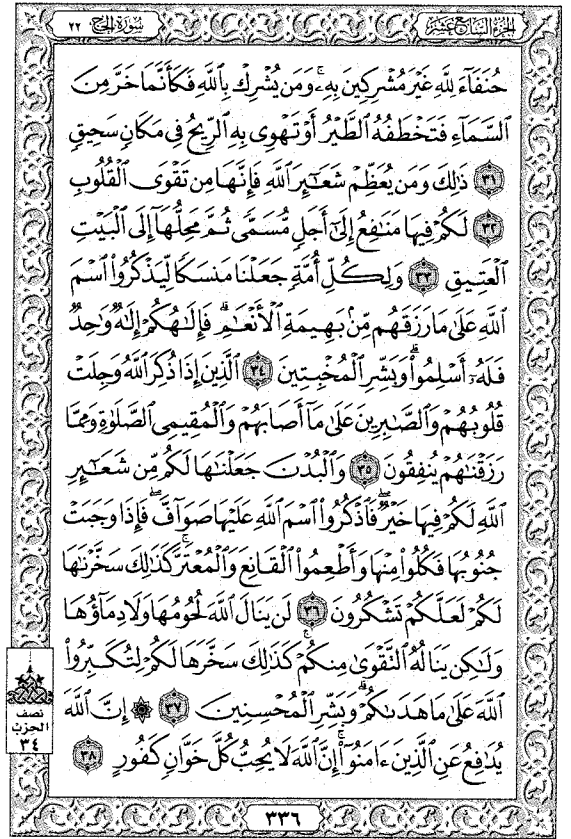 سورة الحج ٢٢
الجزء السابع عشر
حُنَفَآءَ لِلَّهِ غَيْرَ مُشْرِكِينَ بِهِۦۚ وَمَن يُشْرِكْ بِٱللَّهِ فَكَأَنَّمَا خَرَّ مِنَ
ٱلسَّمَآءِ فَتَخْطَفُهُ ٱلطَّيْرُ أَوْ تَهْوِى بِهِ ٱلرِّيحُ فِى مَكَانٍ سَحِيقٍ
٣١ ذَٰلِكَ وَمَن يُعَظِّمْ شَعَـٰٓئِرَ ٱللَّهِ فَإِنَّهَا مِن تَقْوَى ٱلْقُلُوبِ
٣٢ لَكُمْ فِيهَا مَنَـٰفِعُ إِلَىٰٓ أَجَلٍ مُّسَمًّى ثُمَّ مَحِلُّهَآ إِلَى ٱلْبَيْتِ
ٱلْعَتِيقِ ٣٣ وَلِكُلِّ أُمَّةٍ جَعَلْنَا مَنسَكًا لِّيَذْكُرُوا۟ ٱسْمَ
ٱللَّهِ عَلَىٰ مَا رَزَقَهُم مِّنۢ بَهِيمَةِ ٱلْأَنْعَـٰمِۗ فَإِلَـٰهُكُمْ إِلَـٰهٌ وَٰحِدٌ
فَلَهُۥٓ أَسْلِمُوا۟ۗ وَبَشِّرِ ٱلْمُخْبِتِينَ ٣٤ ٱلَّذِينَ إِذَا ذُكِرَ ٱللَّهُ وَجِلَتْ
قُلُوبُهُمْ وَٱلصَّـٰبِرِينَ عَلَىٰ مَآ أَصَابَهُمْ وَٱلْمُقِيمِى ٱلصَّلَوٰةِ وَمِمَّا
رَزَقْنَـٰهُمْ يُنفِقُونَ ٣٥ وَٱلْبُدْنَ جَعَلْنَـٰهَا لَكُم مِّن شَعَـٰٓئِرِ
ٱللَّهِ لَكُمْ فِيهَا خَيْرٌۖ فَٱذْكُرُوا۟ ٱسْمَ ٱللَّهِ عَلَيْهَا صَوَآفَّۖ فَإِذَا وَجَبَتْ
جُنُوبُهَا فَكُلُوا۟ مِنْهَا وَأَطْعِمُوا۟ ٱلْقَانِعَ وَٱلْمُعْتَرَّۚ كَذَٰلِكَ سَخَّرْنَـٰهَا
لَكُمْ لَعَلَّكُمْ تَشْكُرُونَ ٣٦ لَن يَنَالَ ٱللَّهَ لُحُومُهَا وَلَا دِمَآؤُهَا
وَلَـٰكِن يَنَالُهُ ٱلتَّقْوَىٰ مِنكُمْۚ كَذَٰلِكَ سَخَّرَهَا لَكُمْ لِتُكَبِّرُوا۟
ٱللَّهَ عَلَىٰ مَا هَدَىٰكُمْۗ وَبَشِّرِ ٱلْمُحْسِنِينَ ٣٧ ۞ إِنَّ ٱللَّهَ
يُدَٰفِعُ عَنِ ٱلَّذِينَ ءَامَنُوٓا۟ۗ إِنَّ ٱللَّهَ لَا يُحِبُّ كُلَّ خَوَّانٍ كَفُورٍ ٣٨
نصف
الحزب
٣٤
٣٣٦